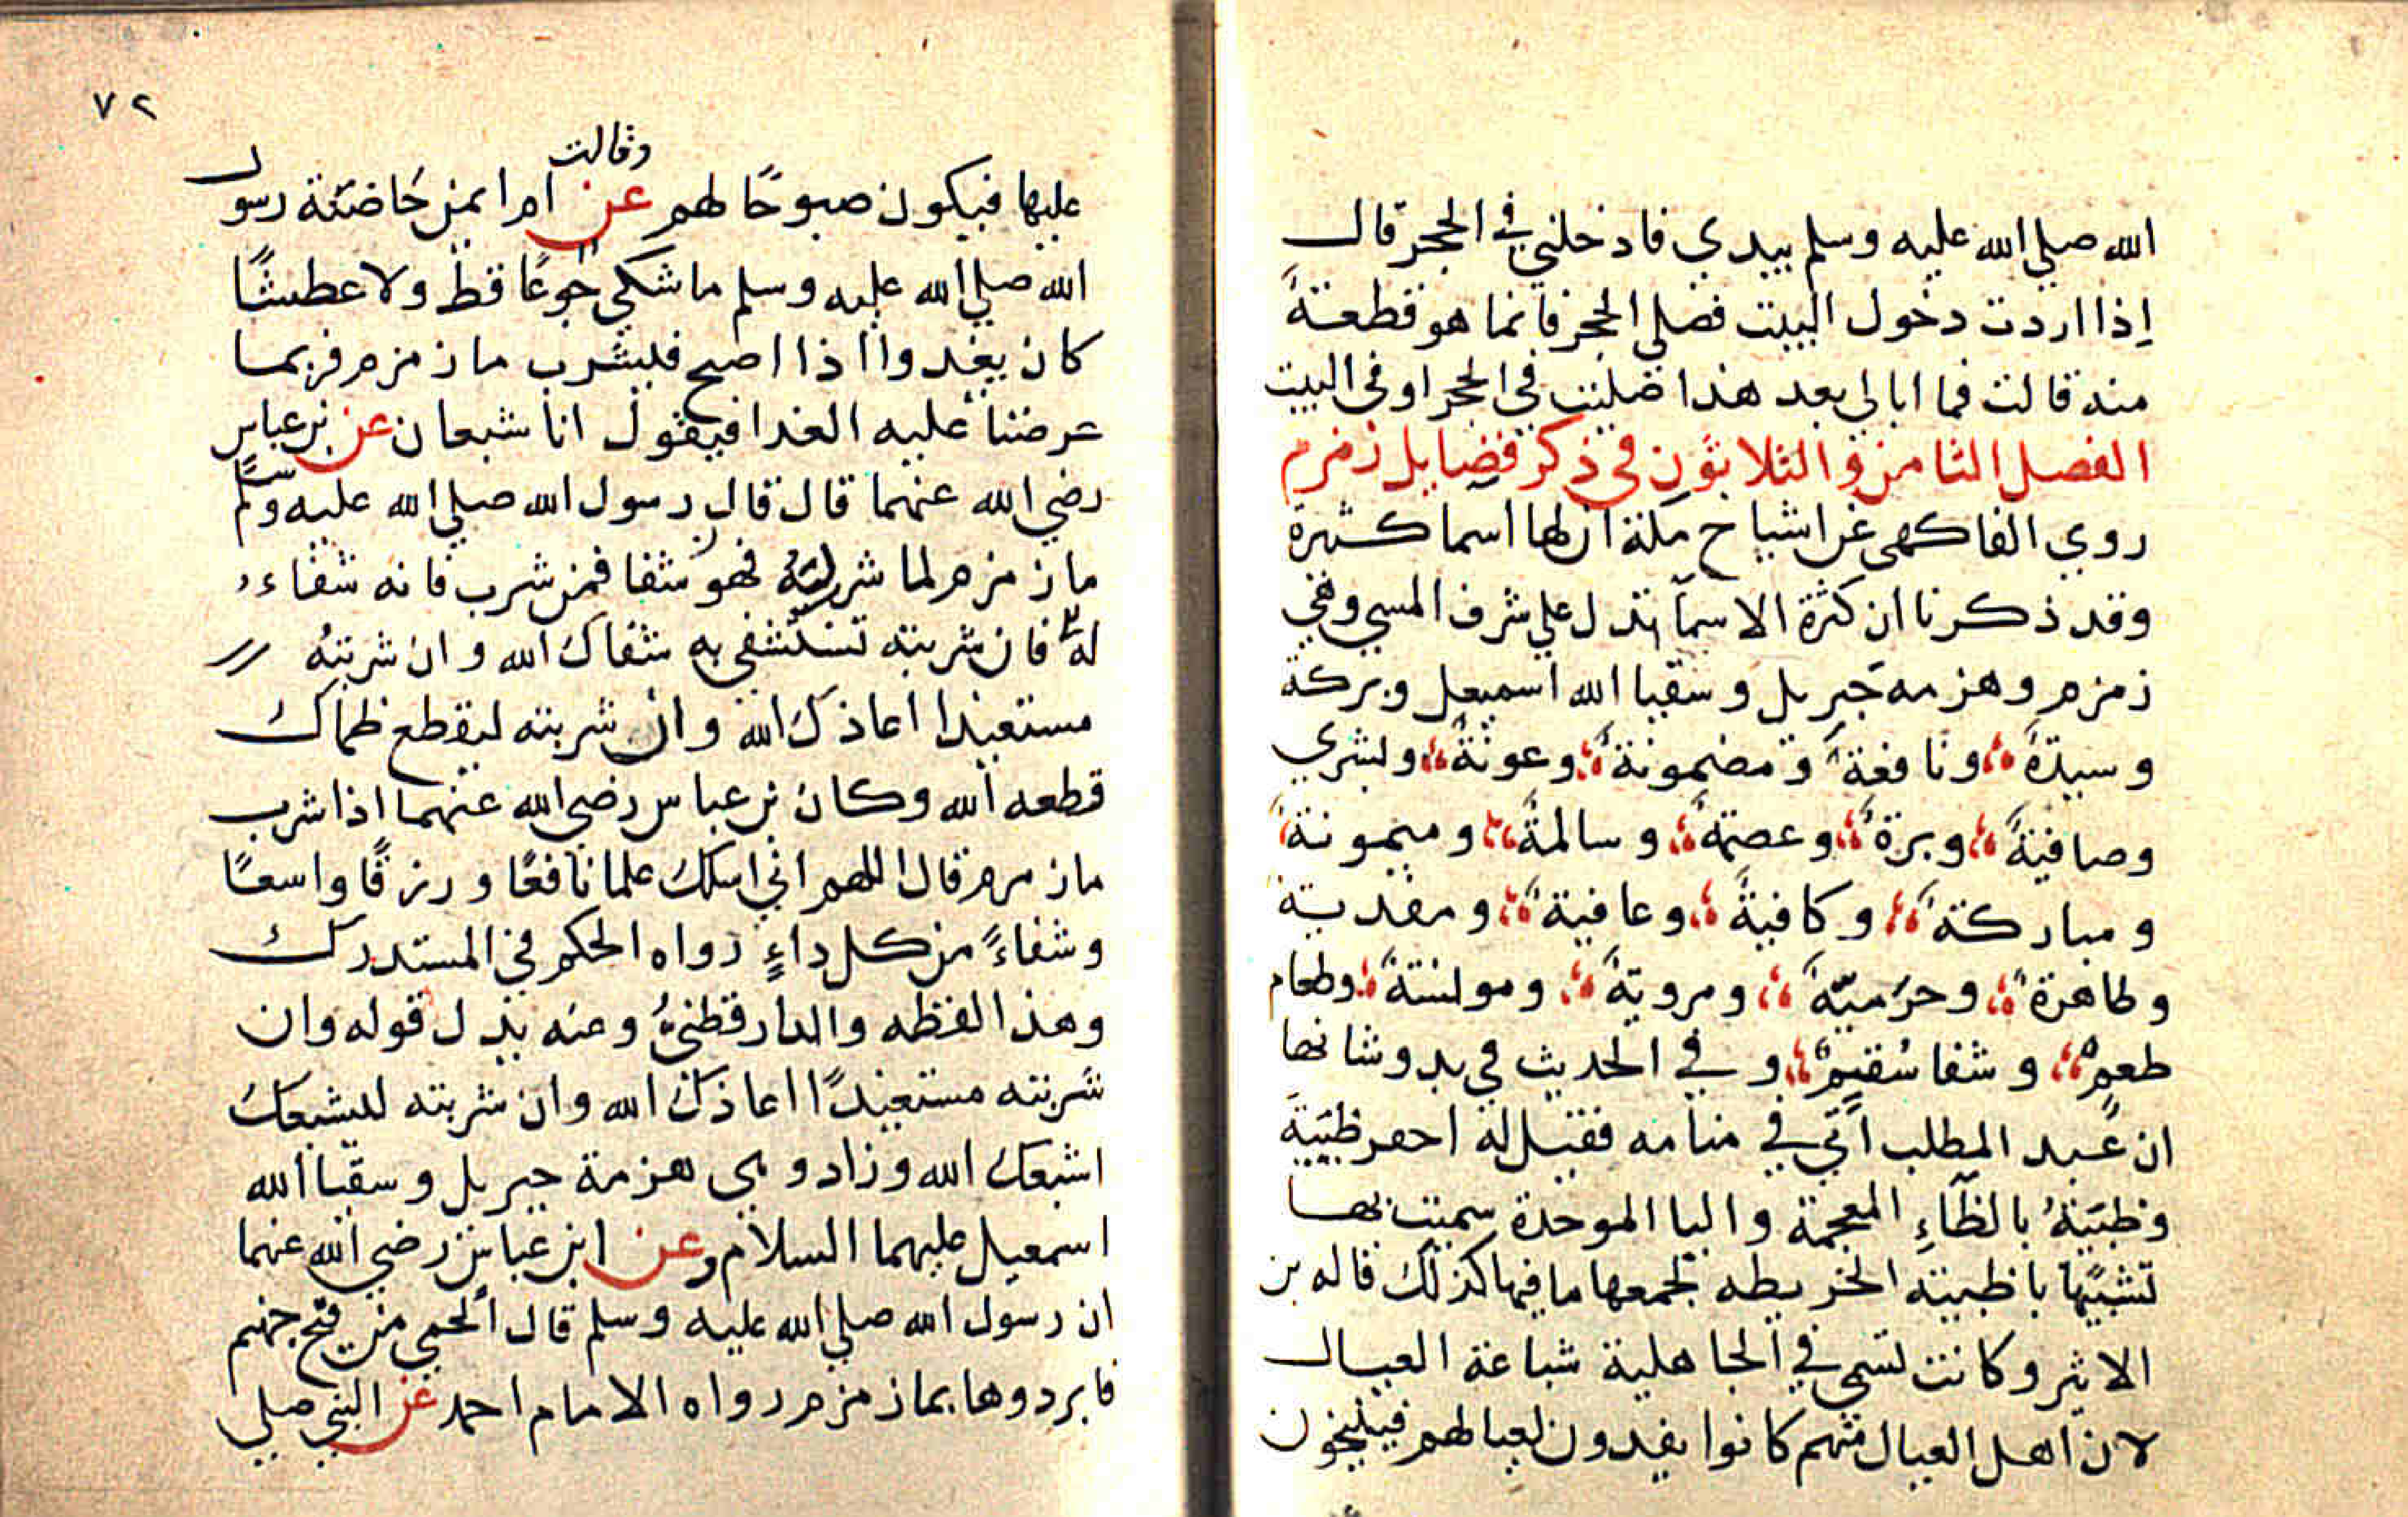 الله صلي الله عليه وسلم بيدي فادخلني في الحجر قال
إذا اردت دخول البيت فصلي الحجر فانما هو قطعةً
منه قالت فما ابالي بعد هذا صليت في الحجر او في البيت
الفصل الثامن والثلاثون في ذكر فضايل زمزم
روي الفاكهي عن اشياخ مكة ان لها اسما كثيرة
وقد ذكرنا ان كثرة الاسمآ تدل علي شرف المسمي وهي
زمزم وهزمه جبريل وسقيا الله اسمعيل وبركة
وسيدة ونافعة ومضمونة وعونة وبشري
وصافية وبرة وعصمة وسالمة وميمونة
ومباركة وكافية وعافية ومغدية
وطاهرة وحرمية ومروية ومونسة وطعام
طعم وشفا سقيم وفي الحديث في بدو شانها
ان عبد المطلب اُتي في منامه فقيل له احفر ظبية
وظبيةُ بالظّاءِ المعجمة والبا الموحدة سميت بها
تشبيها باظبيته الخريطه لجمعها ما فيها كذلك قاله بن
الاثير وكانت تسمي في الجاهلية شباعة العيال
لان اهل العيال منهم كانوا يغدون لعيالهم فينيخون
٧٢
وقالت
عليها فيكون صبوحًا لهم عن ام ايمن حَاضنة رسول
الله صلي الله عليه وسلم ما شكي جوعًا قط ولا عطشًا
كان يغدوا اذا اصبح فليشرب ما زمزم فربما
عرضنا عليه الغدا فيقول انا شبعان عن بن عباس
رضي الله عنهما قال قال رسول الله صلي الله عليه وسلم
ما زمزم لما شرب له فهو شفا فمن شرب فانه شفاء
له فان شربته تستشفي به شفاك الله وان شربته
مستعيذا اعاذك الله وان شربته ليقطع ظماك
قطعه الله وكان بن عباس رضي الله عنهما اذا شرب
ما زمرم قال اللهم اني اسلك علما نافعًا ورزقًا واسعًا
وشفاءً من كل داءٍ رواه الحكم في المستدرك
وهذا لفظه والدارقطني وعنه بدل قوله وان
شربته مستعيذًا اعاذك الله وان شربته لليشبعك
اشبعك الله وزاد وهي هزمة جبريل وسقيا الله
اسمعيل عليهما السلام وعن ابن عباس رضي الله عنهما
ان رسول الله صلي الله عليه وسلم قال الحمي من فيح جهنم
فابردوها بما زمزم رواه الامام احمد عن النبي صلي